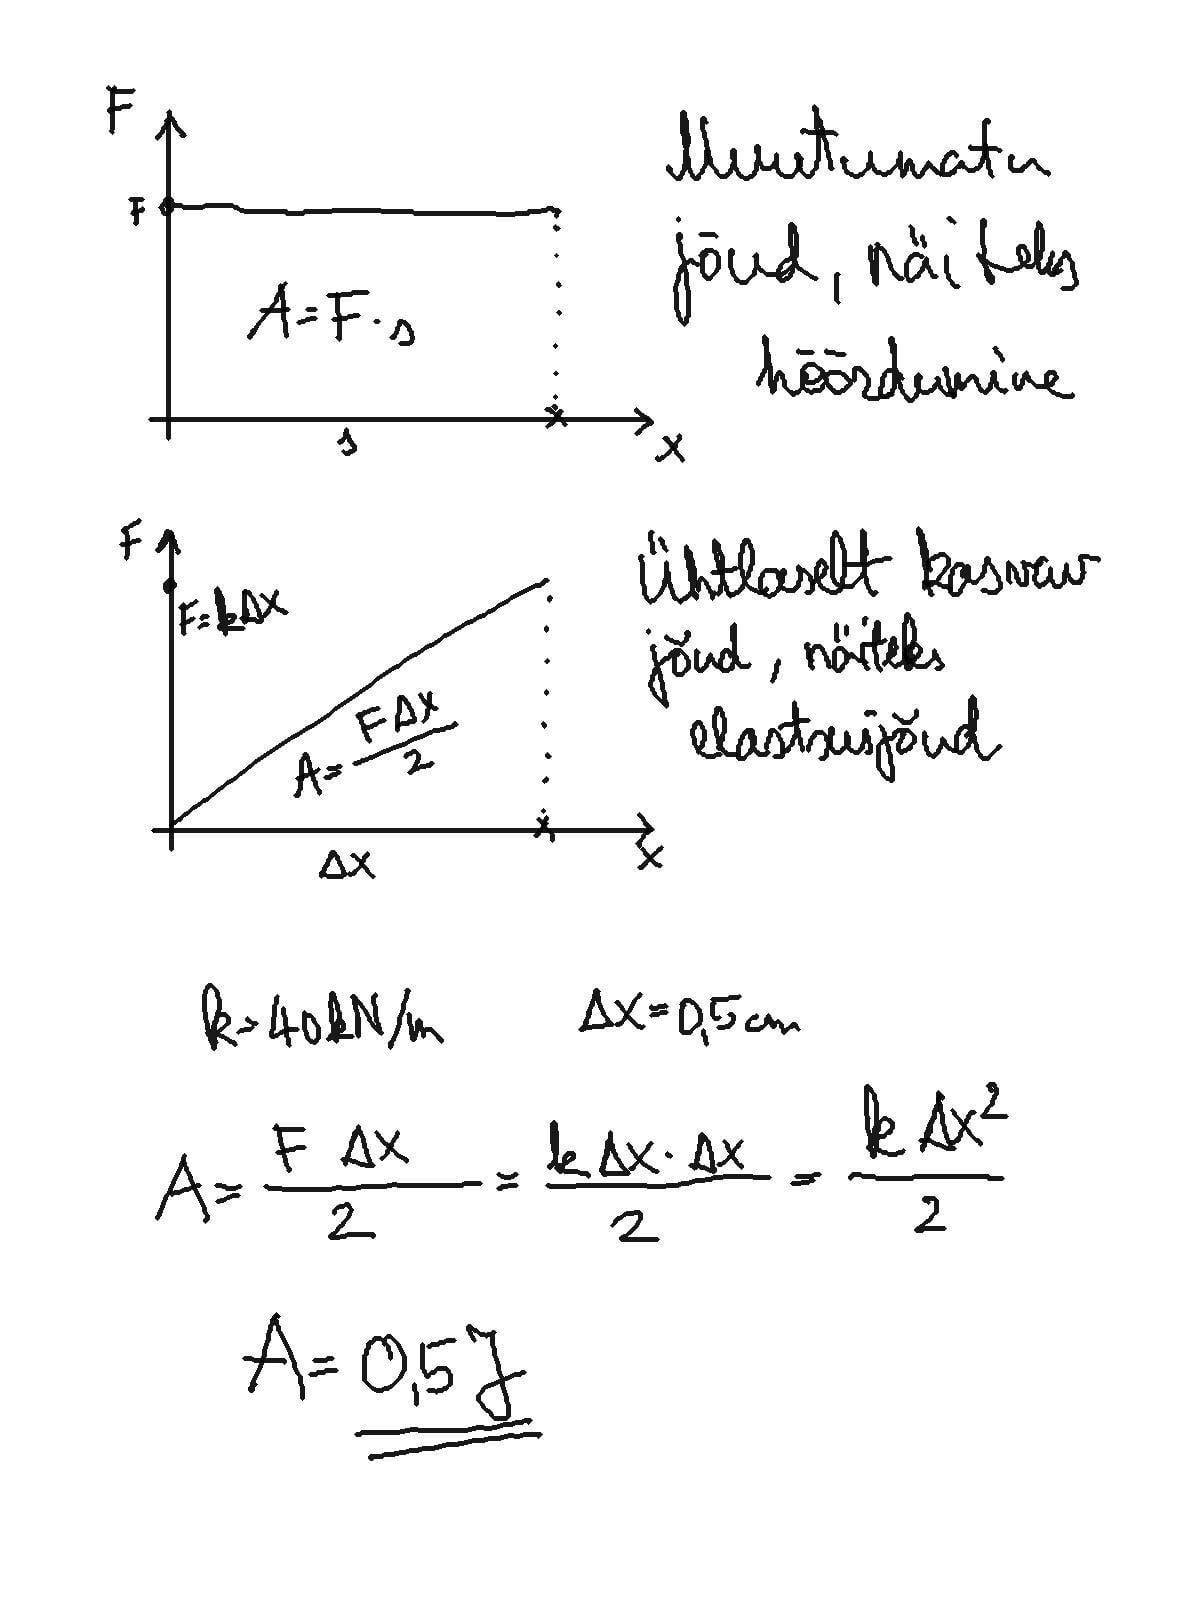 F
F
A=F·s
s
x
Muutumatu
jõud, näiteks
hõõrdumine
F
F=kΔx
A=FΔx/2
Δx
x
Ühtlaselt kasvav
jõud, näiteks
elastsusjõud
k=40kN/m Δx=0,5cm
A= F Δx/2 = k Δx·Δx/2 = k Δx²/2
A= 0,5J